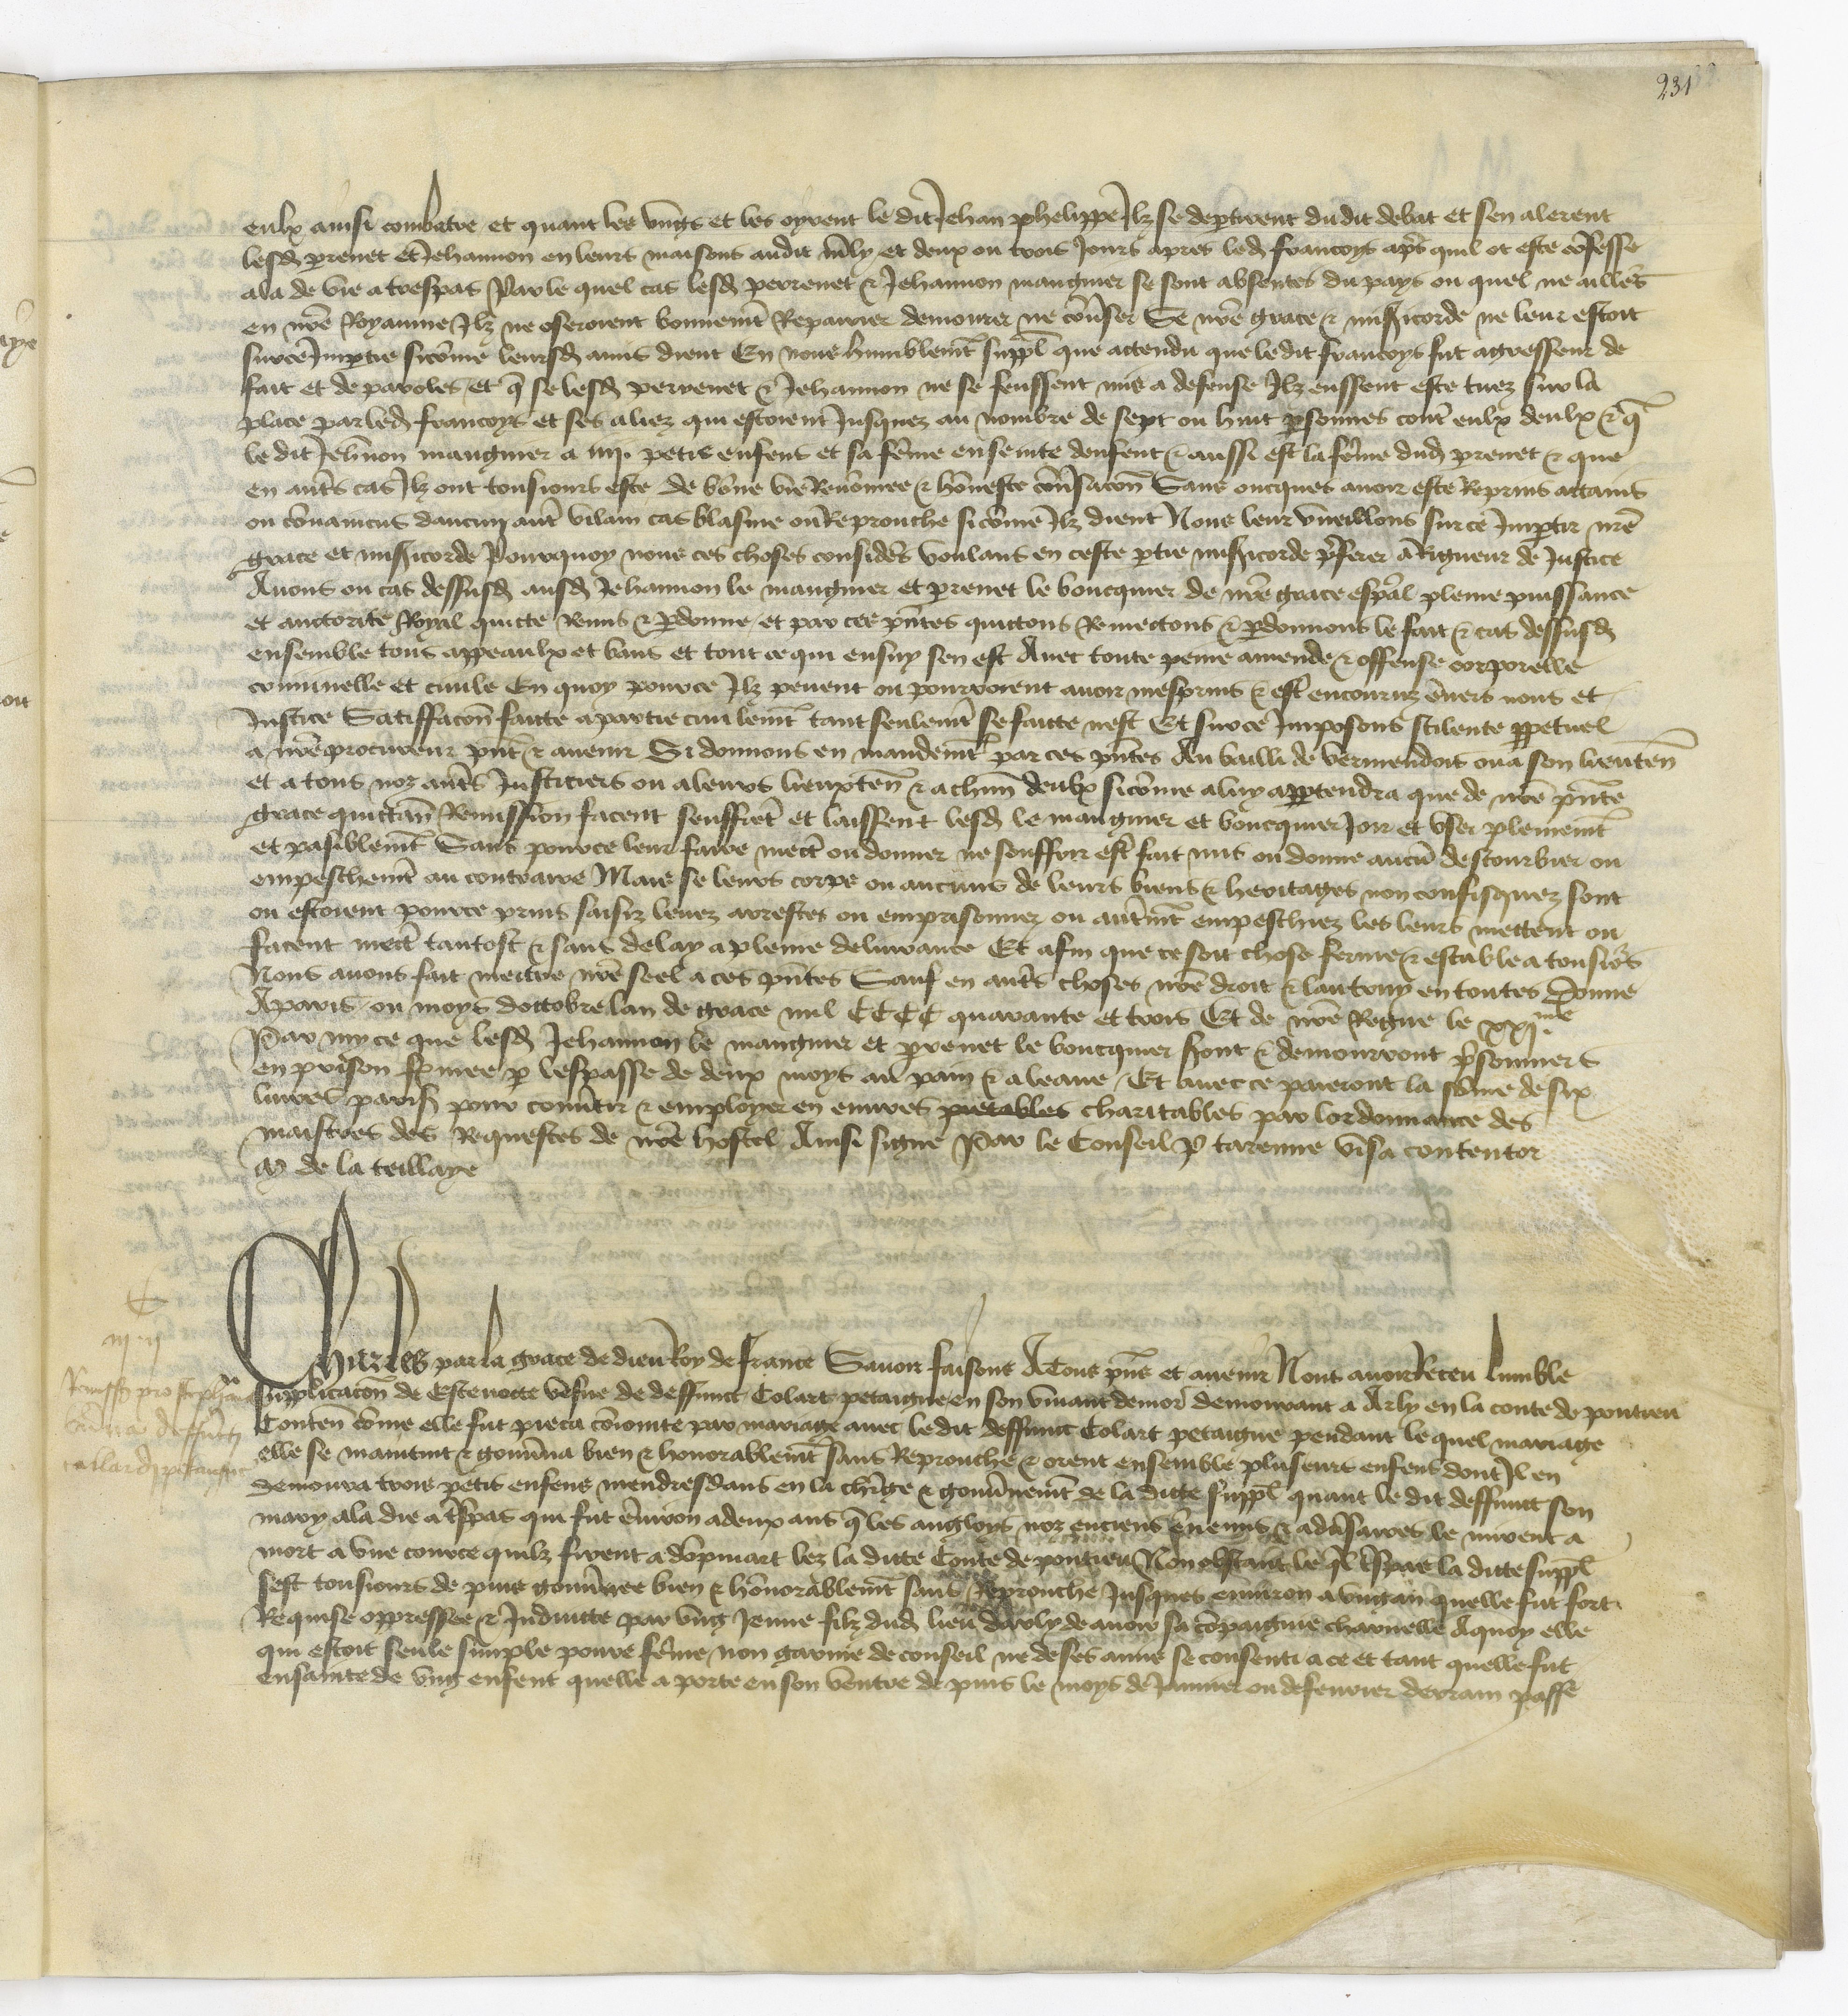 231
eulx ainsi combatre et quant les ungs et les oyrent le dit Jehan phelippe Ilz se deptirent dudit debat et sen alerent
lesd perenet et Jehannon en leurs maisons audit mly et deux ou trois Jours apres led francoys aps quil ot este cofesse
ala de vie a trespas Par le quel cas lesd perrenet & Jehannon maugnier se sont absentes du pays ou quel ne ailles
en nre Royaume Ilz ne oseroient bonnemt Repairier demourer ne conser Se nre grace & misicorde ne leur estoit
surce Impartie sicome leursd amis dient En nous humblemt suppl que actendu que le dit francoys fut agresseur de
fait et de paroles et q se lesd perrenet & Jehannon ne se feussent mis a defense Ilz eussent este tuez sur la
place par led francoys et ses aliez qui estoient Jusquez au nombre de sept ou huit psonnes cont eulx deulx & q
le dit Jehnon maugnier a iiii. petis enfens et sa feme enseinte denfent & aussi est la feme dud prenet & que
en auts cas Ilz ont tousiours este de bone vie Renomee & honneste consacon Sans oncques avoir este Reprins attains
ou convaincus daucun aut vilain cas blasme ou Reprouche sicome Ilz dient Nous leur vueillons surce Impartir nre
grace et misicorde Pourquoy nous ces choses consideres voulans en ceste ptie misicorde pferer a Rigueur de Justice
Avons ou cas dessusd ausd Jehannon le maugnier et perenet le boucquier de nre grace espal pleine puissance
et auctorite Royal quicte Remis & pdonne et par ces pntes quictons Remectons & pdonnons le fait & cas dessusd
ensemble tous appeaulx et bans et tout ce qui ensuy sen est Avec toute peine amende & offense corporelle
criminelle et civile En quoy pource Ilz pevent ou pourroient avoir mesprins & est encouruz evers nous et
Justice Satiffacon faicte a partie civilemt tant seulemt se faicte nest Et surce Imposons scilence ppetuel
a nre procureur pnt & avenir Si donnons en mandemt par ces pntes Au bailli de vermendois ou a son lieuten
et a tous noz auts Justiciers ou a leurs lieuxten & a chun deulx sicome a luy apptendra que de nre pnte
grace quictan Remission facent seuffret et laissent lesd le maugnier et boucquier Joir et user plenemt
et pasiblemt Sans pource leur faire mect ou donner ne souffrir est fait mis ou donne aucu destourbier ou
empeschemt au contraire Mais se leurs corps ou aucuns de leurs biens & heritages non confisquez sont
ou estoient pource prins saisiz levez arrestes ou emprisonnez ou autmt empeschiez les leurs mettent ou
facent mect tantost & sans delay a pleine delivrance Et afin que ce soit chose ferme & estable a tousiors
Nous avons fait mettre nre seel a ces pntes Sauf en auts choses nre droit & lautruy en toutes Donne
A paris ou moys doctobre lan de grace mil CCCC quarante et trois Et de nre Regne le xxi me
Par my ce que lesd Jehannon le maugnier et perrenet le boucquier sont & demourront psonniers
en prison fermee p lespasse de deux moys au pain & a leaue Et avec ce paieront la some de six
livres paris pour convtir & employer en euvres pietables charitables par lordonnance des
maistres des Requestes de nre hostel Ainsi signe Par le Conseil P tarenne visa contentor
M de la teillaye
Charles par la grace de dieu Roy de france Savoir faisons A Tous pns et avenir Nous avoir Receu lumble
supplicacon de Estenotte vefve de deffunct Colart petaigne en son vivant demor demourant a Arly en la conte de pontieu
Conten come elle fut pieca coniointe par mariage avec le dit deffunct Colart petaigne pendant le quel mariage
elle se maintint & gouvna bien & honorablemt sans Reprouche & orent ensemble pluseurs enfens dont Il en
demoura trois petis enfens mendresdans en la charge & gouvnemt de la ditte suppl quant le dit deffunct son
mary ala die a tspas qui fut environ a deux ans q les angloys noz enciens enemis & advsaires le mirent a
mort a une course quilz firent a dompmart lez la ditte Conte de pontieu Non obstant le ql tspas la ditte suppl
sest tousiours de puis gouvnee bien & honorablemt sans Reprouche Jusques environ a ung an quelle fut fort
Requise oppressee & Induitte par ung Jeune filz dud lieu darly de avoir sa compaignie charnelle A quoy elle
qui estoit seule simple povre feme non garnie de conseil ne de ses amis se consenti a ce et tant quelle fut
ensainte de ung enfent quelle a porte en son ventre de puis le moys de Janvier ou de fevrier derrain passe